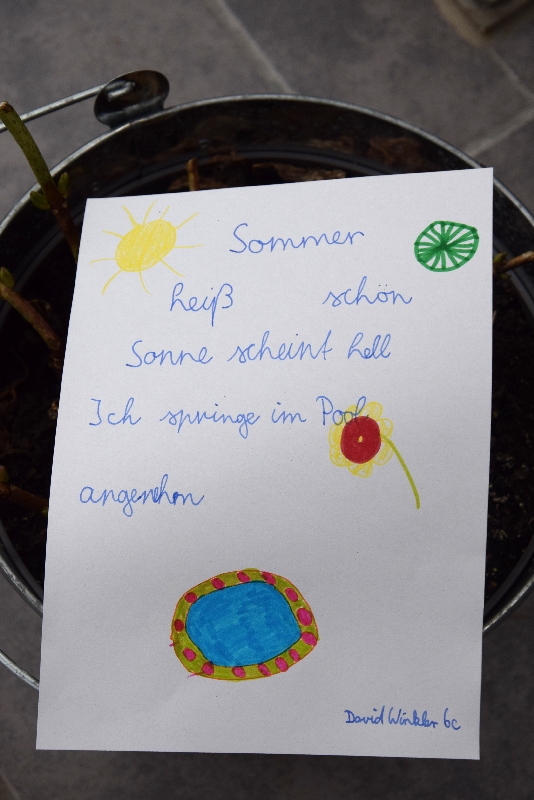 Sommer
heiß schön
Sonne scheint hell
Ich springe im Pool
angenehm
David Winkler 6c